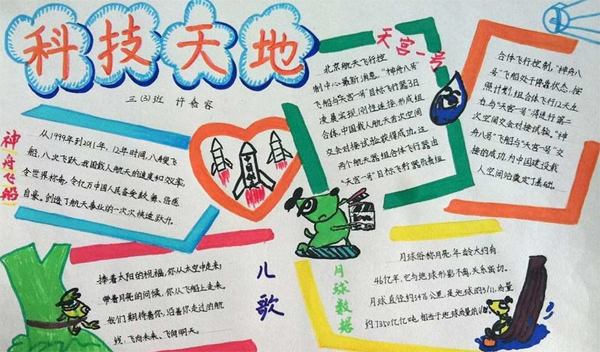 科技天地
三(3)班 许嘉容
神舟飞船
从1999年到2011年,12年时间,八艘飞
船,八次飞跃,我国载人航天的速度和效率,
令世界称奇,令亿万中国人民备受鼓舞、倍感
自豪。创造了航天事业的一次次快速跃升。
天宫一号
北京航天飞行控
制中心最新消息,“神舟八号”
飞船与“天宫一号”目标飞行器3日
凌晨实现刚性连接,形成组
合体,中国载人航天首次空间
交会对接试验获得成功。这
两个航天器组合体飞行器由
“天宫一号”目标飞行器所负责
合体飞行控制,“神舟
八号”飞船处于停靠状态。按
照计划,组合体飞行12天左
右,与“天宫一号”将进行第二
次空间交会对接试验。“神
舟八号”飞船与“天宫一号”交
接的成功,为中国建设载
人空间站奠定了基础。
儿歌
捧着太阳的祝福,你从太空中走来;
带着月亮的问候,你从飞船上走来。
我们期待着你,沿着你走过的航
线,飞向未来、飞向明天。
月球数据
月球俗称月亮,年龄大约有
46亿年,它与地球形影不离,关系密切。
月球直径约3476公里,是地球的3/11。质量
约7350亿亿吨,相当于地球质量的1/81